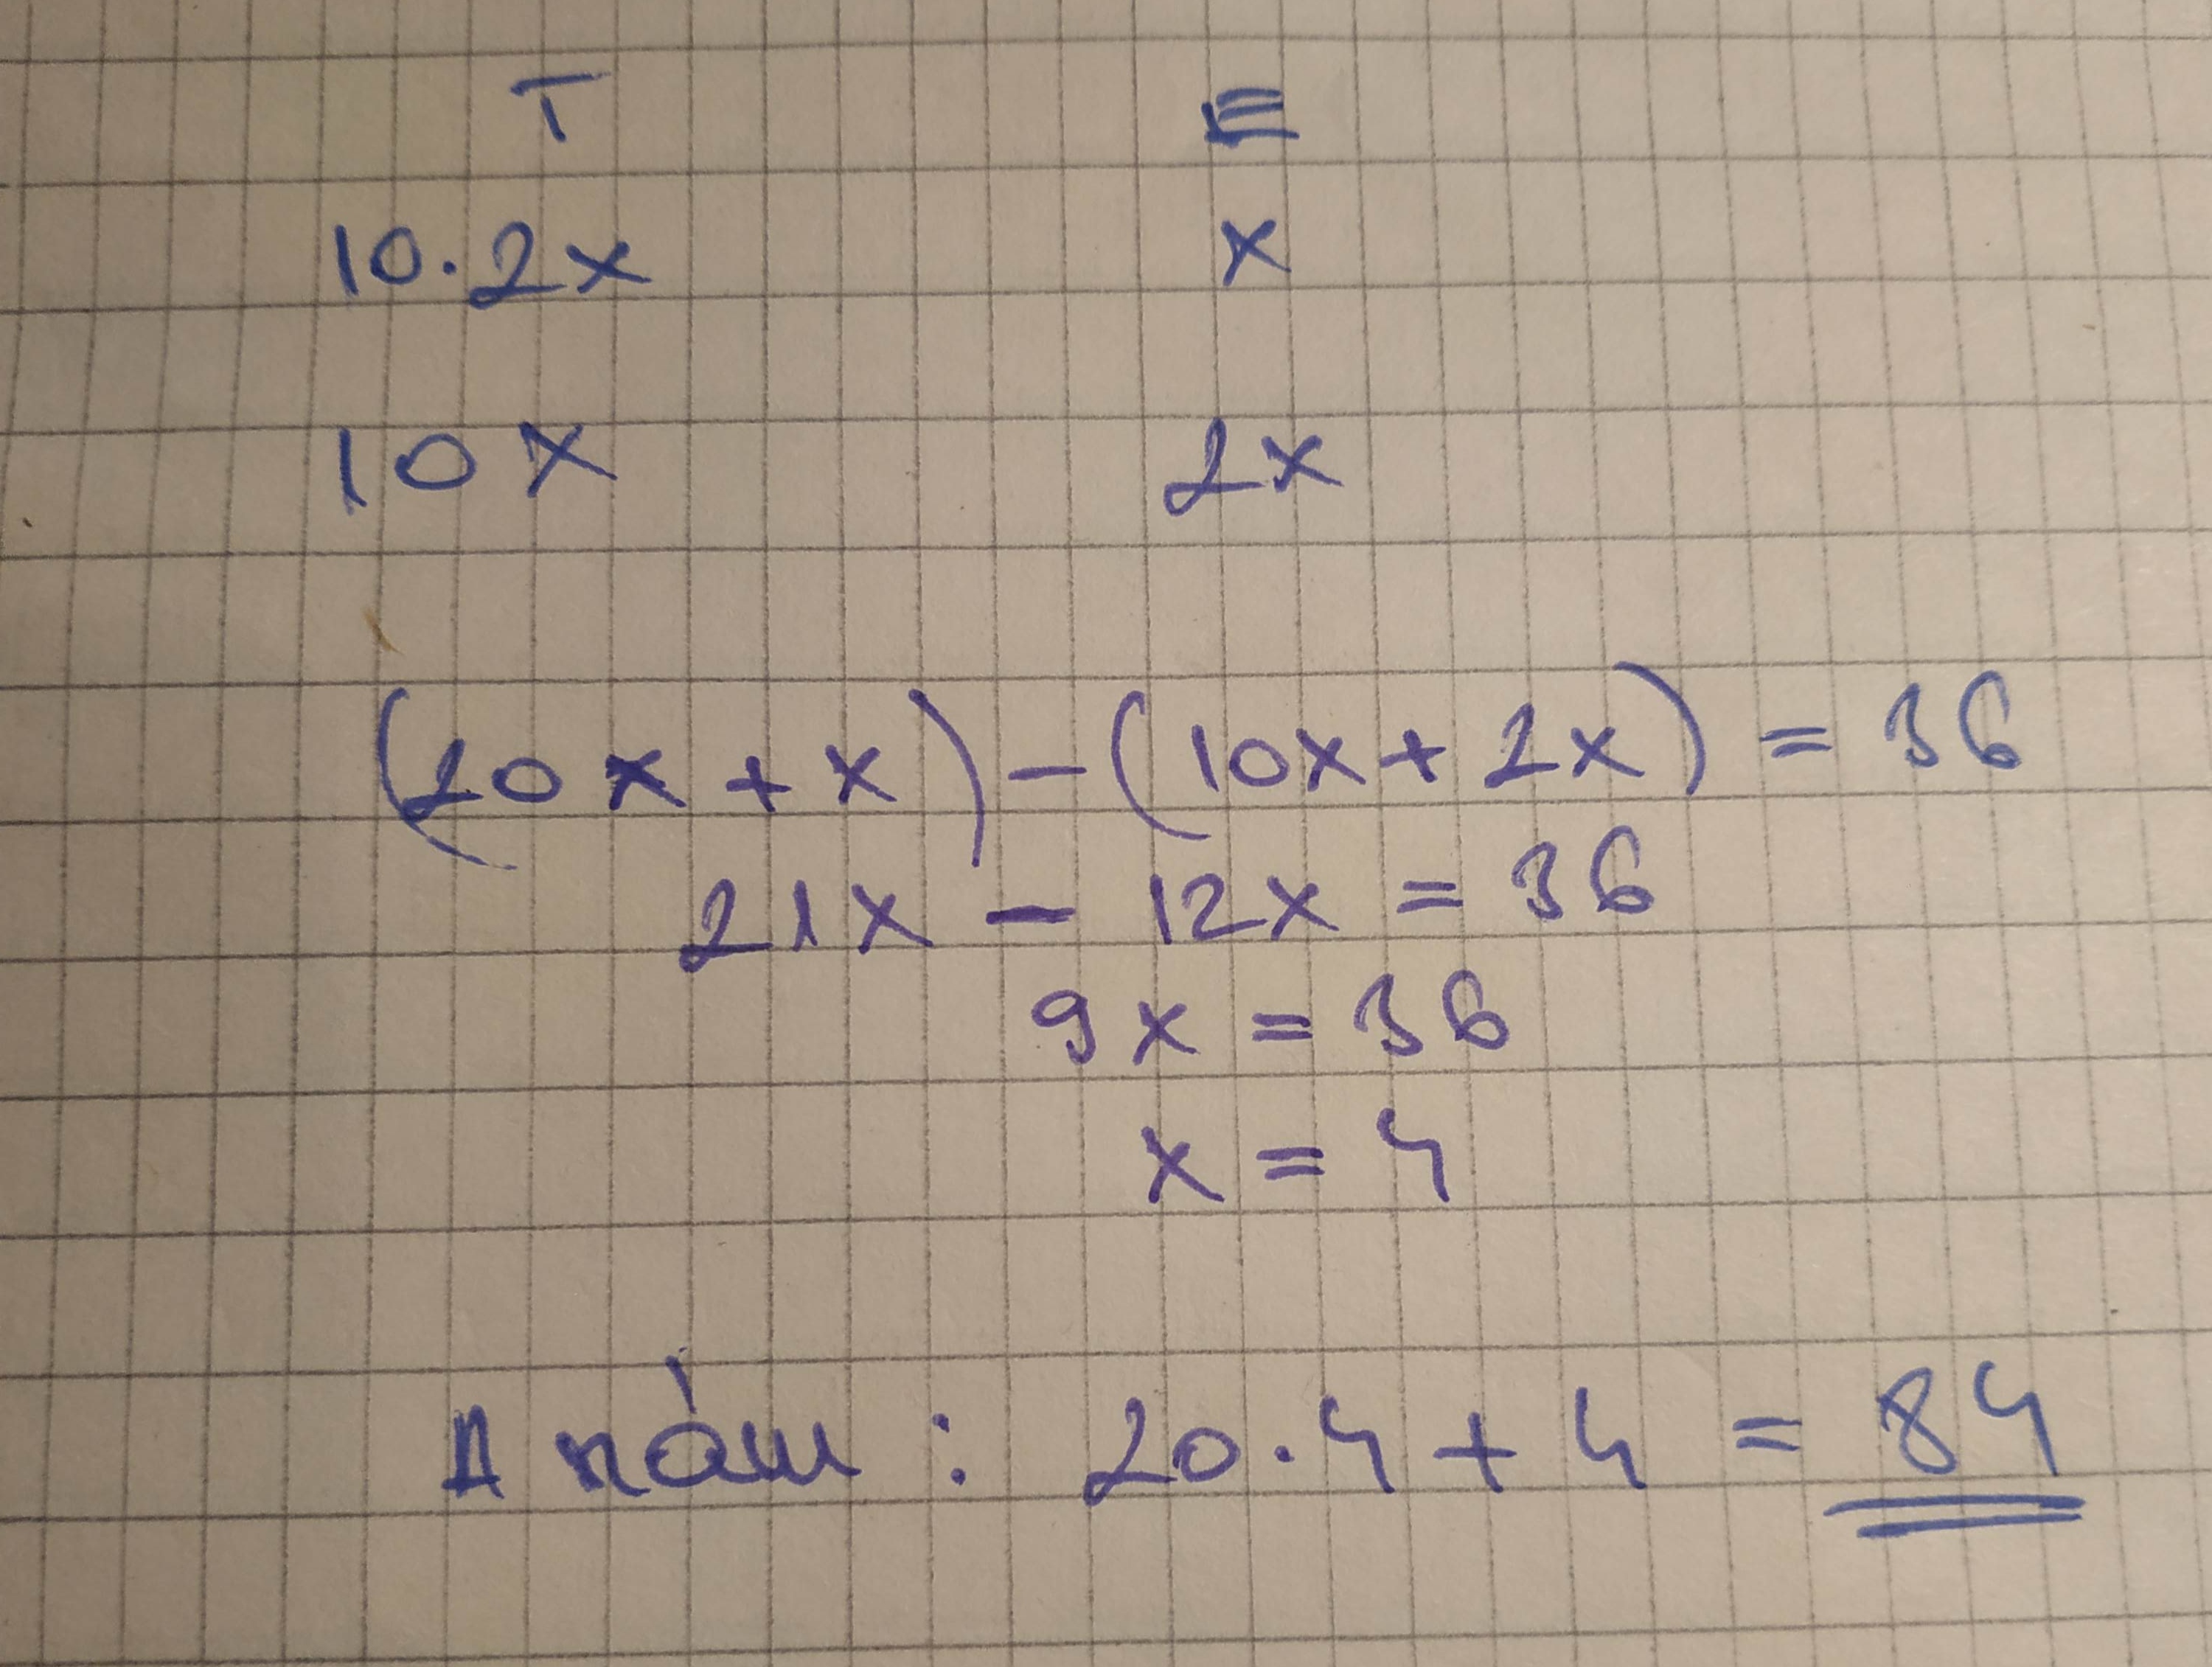 T E
10·2x x
10x 2x
(20x+x)-(10x+2x)=36
21x-12x=36
9x=36
x=4
A szám: 20·4+4=84